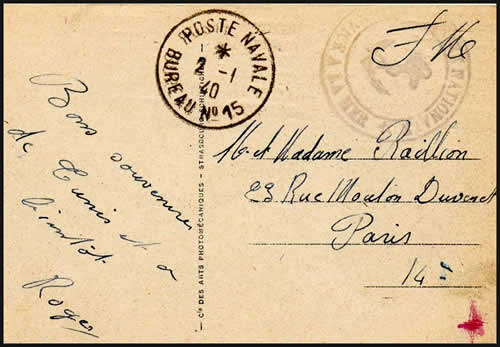 Bons souvenirs
de Tunis et a
bientôt
Roger
POSTE NAVALE
*
2 -1
40
BUREAU Nº 15
Cie DES ARTS PHOTOMÉCANIQUES - STRASBOURG-SCHILTIGHEIM
FM
M. et Madame Raillion
23 Rue Mouton Duvernet
Paris
14